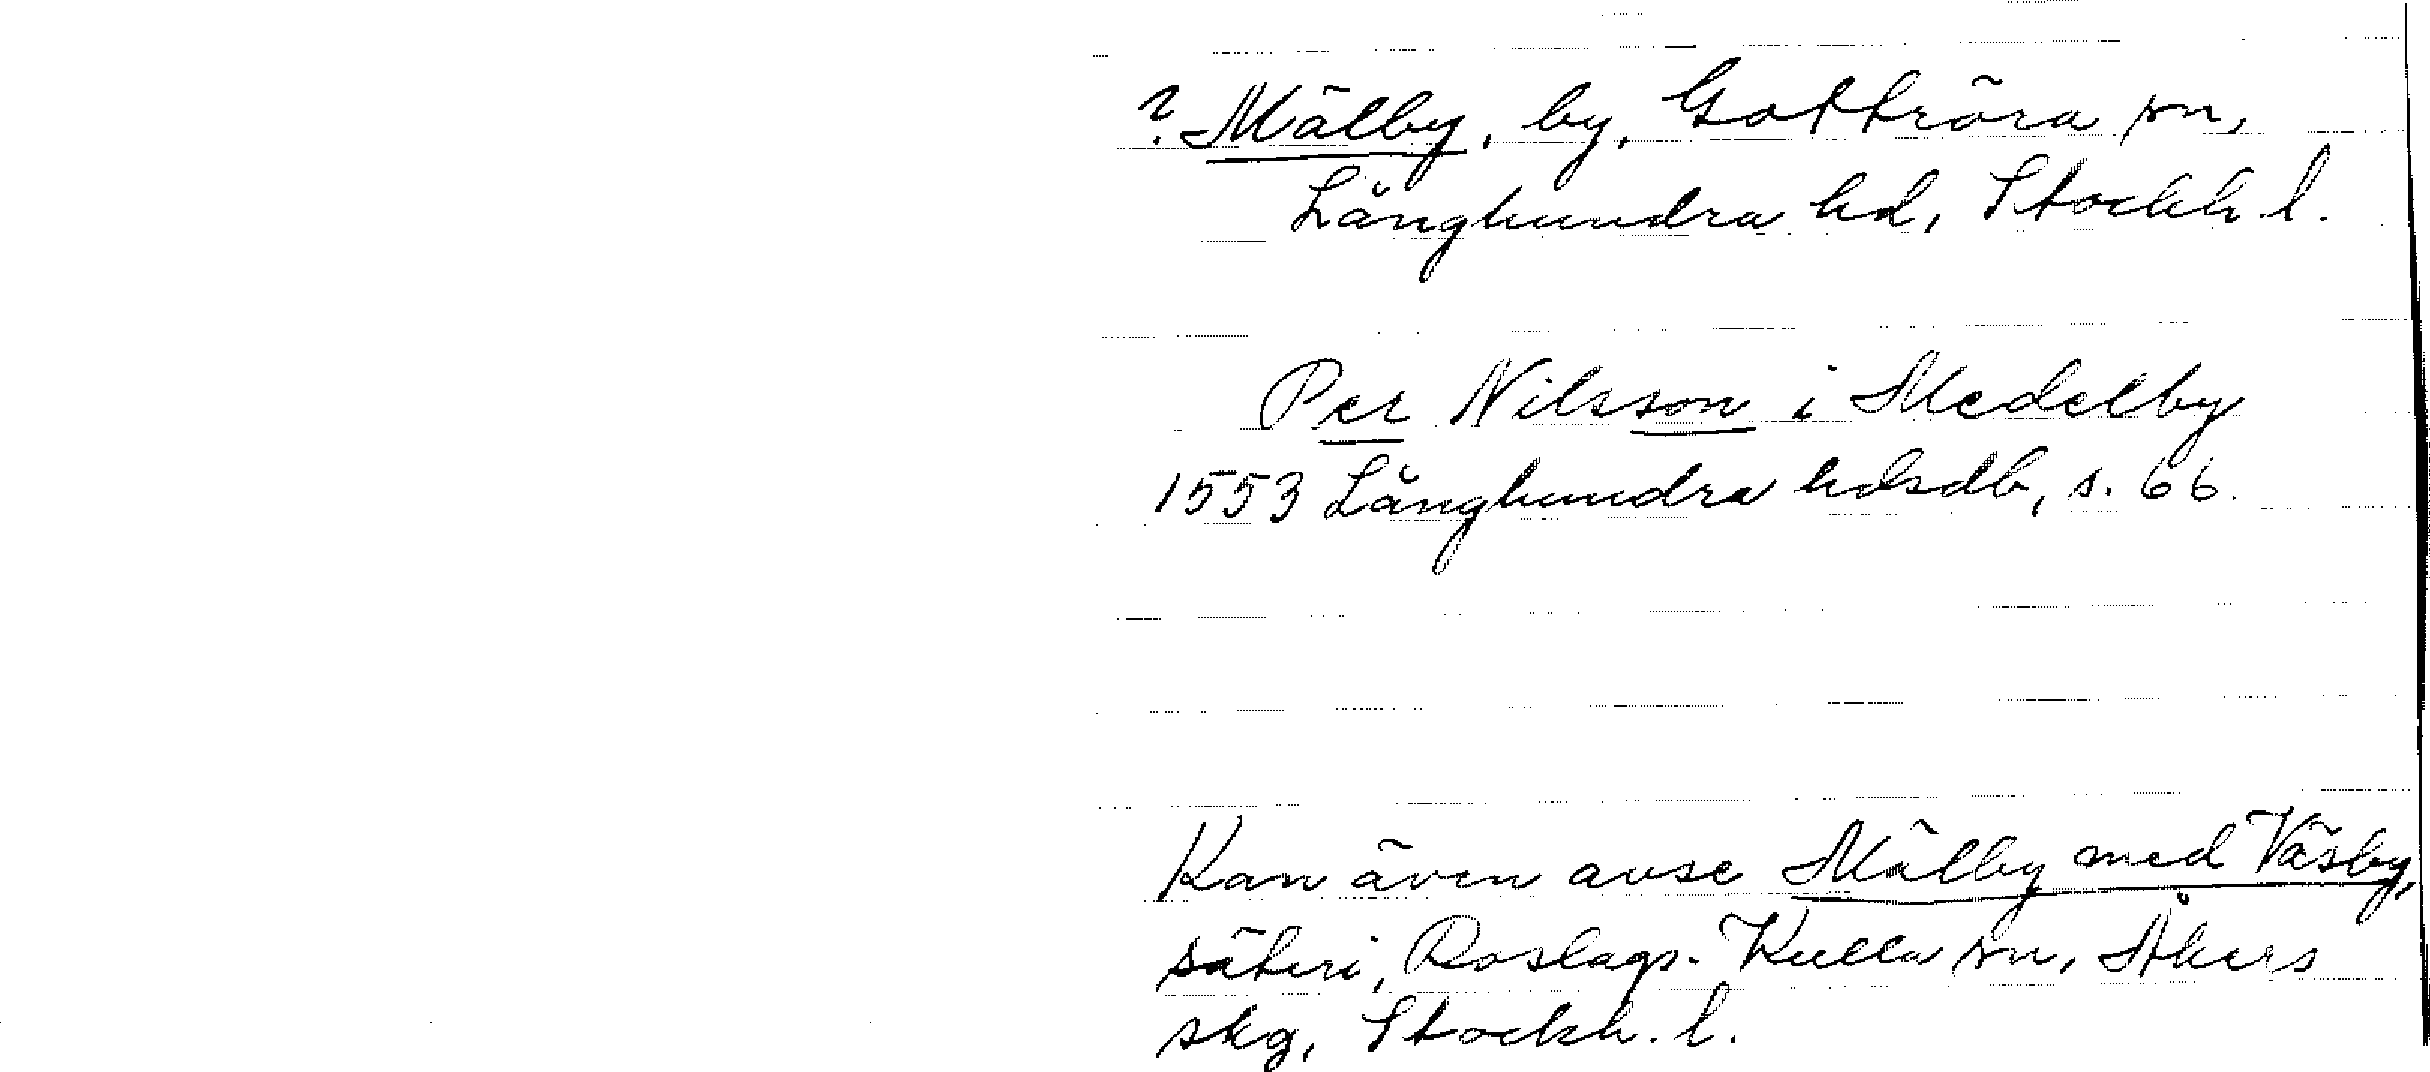 ? Mälby, by, Gottröra sn,
Långhundra hd, Stockh. l.
Per Nilsson i Medelby
1553 Långhundra hdsdb, s. 66.
Kan även avse Mälby med Väsby,
säteri, Roslags-Kulla sn, Åkers
skg, Stockh. l.